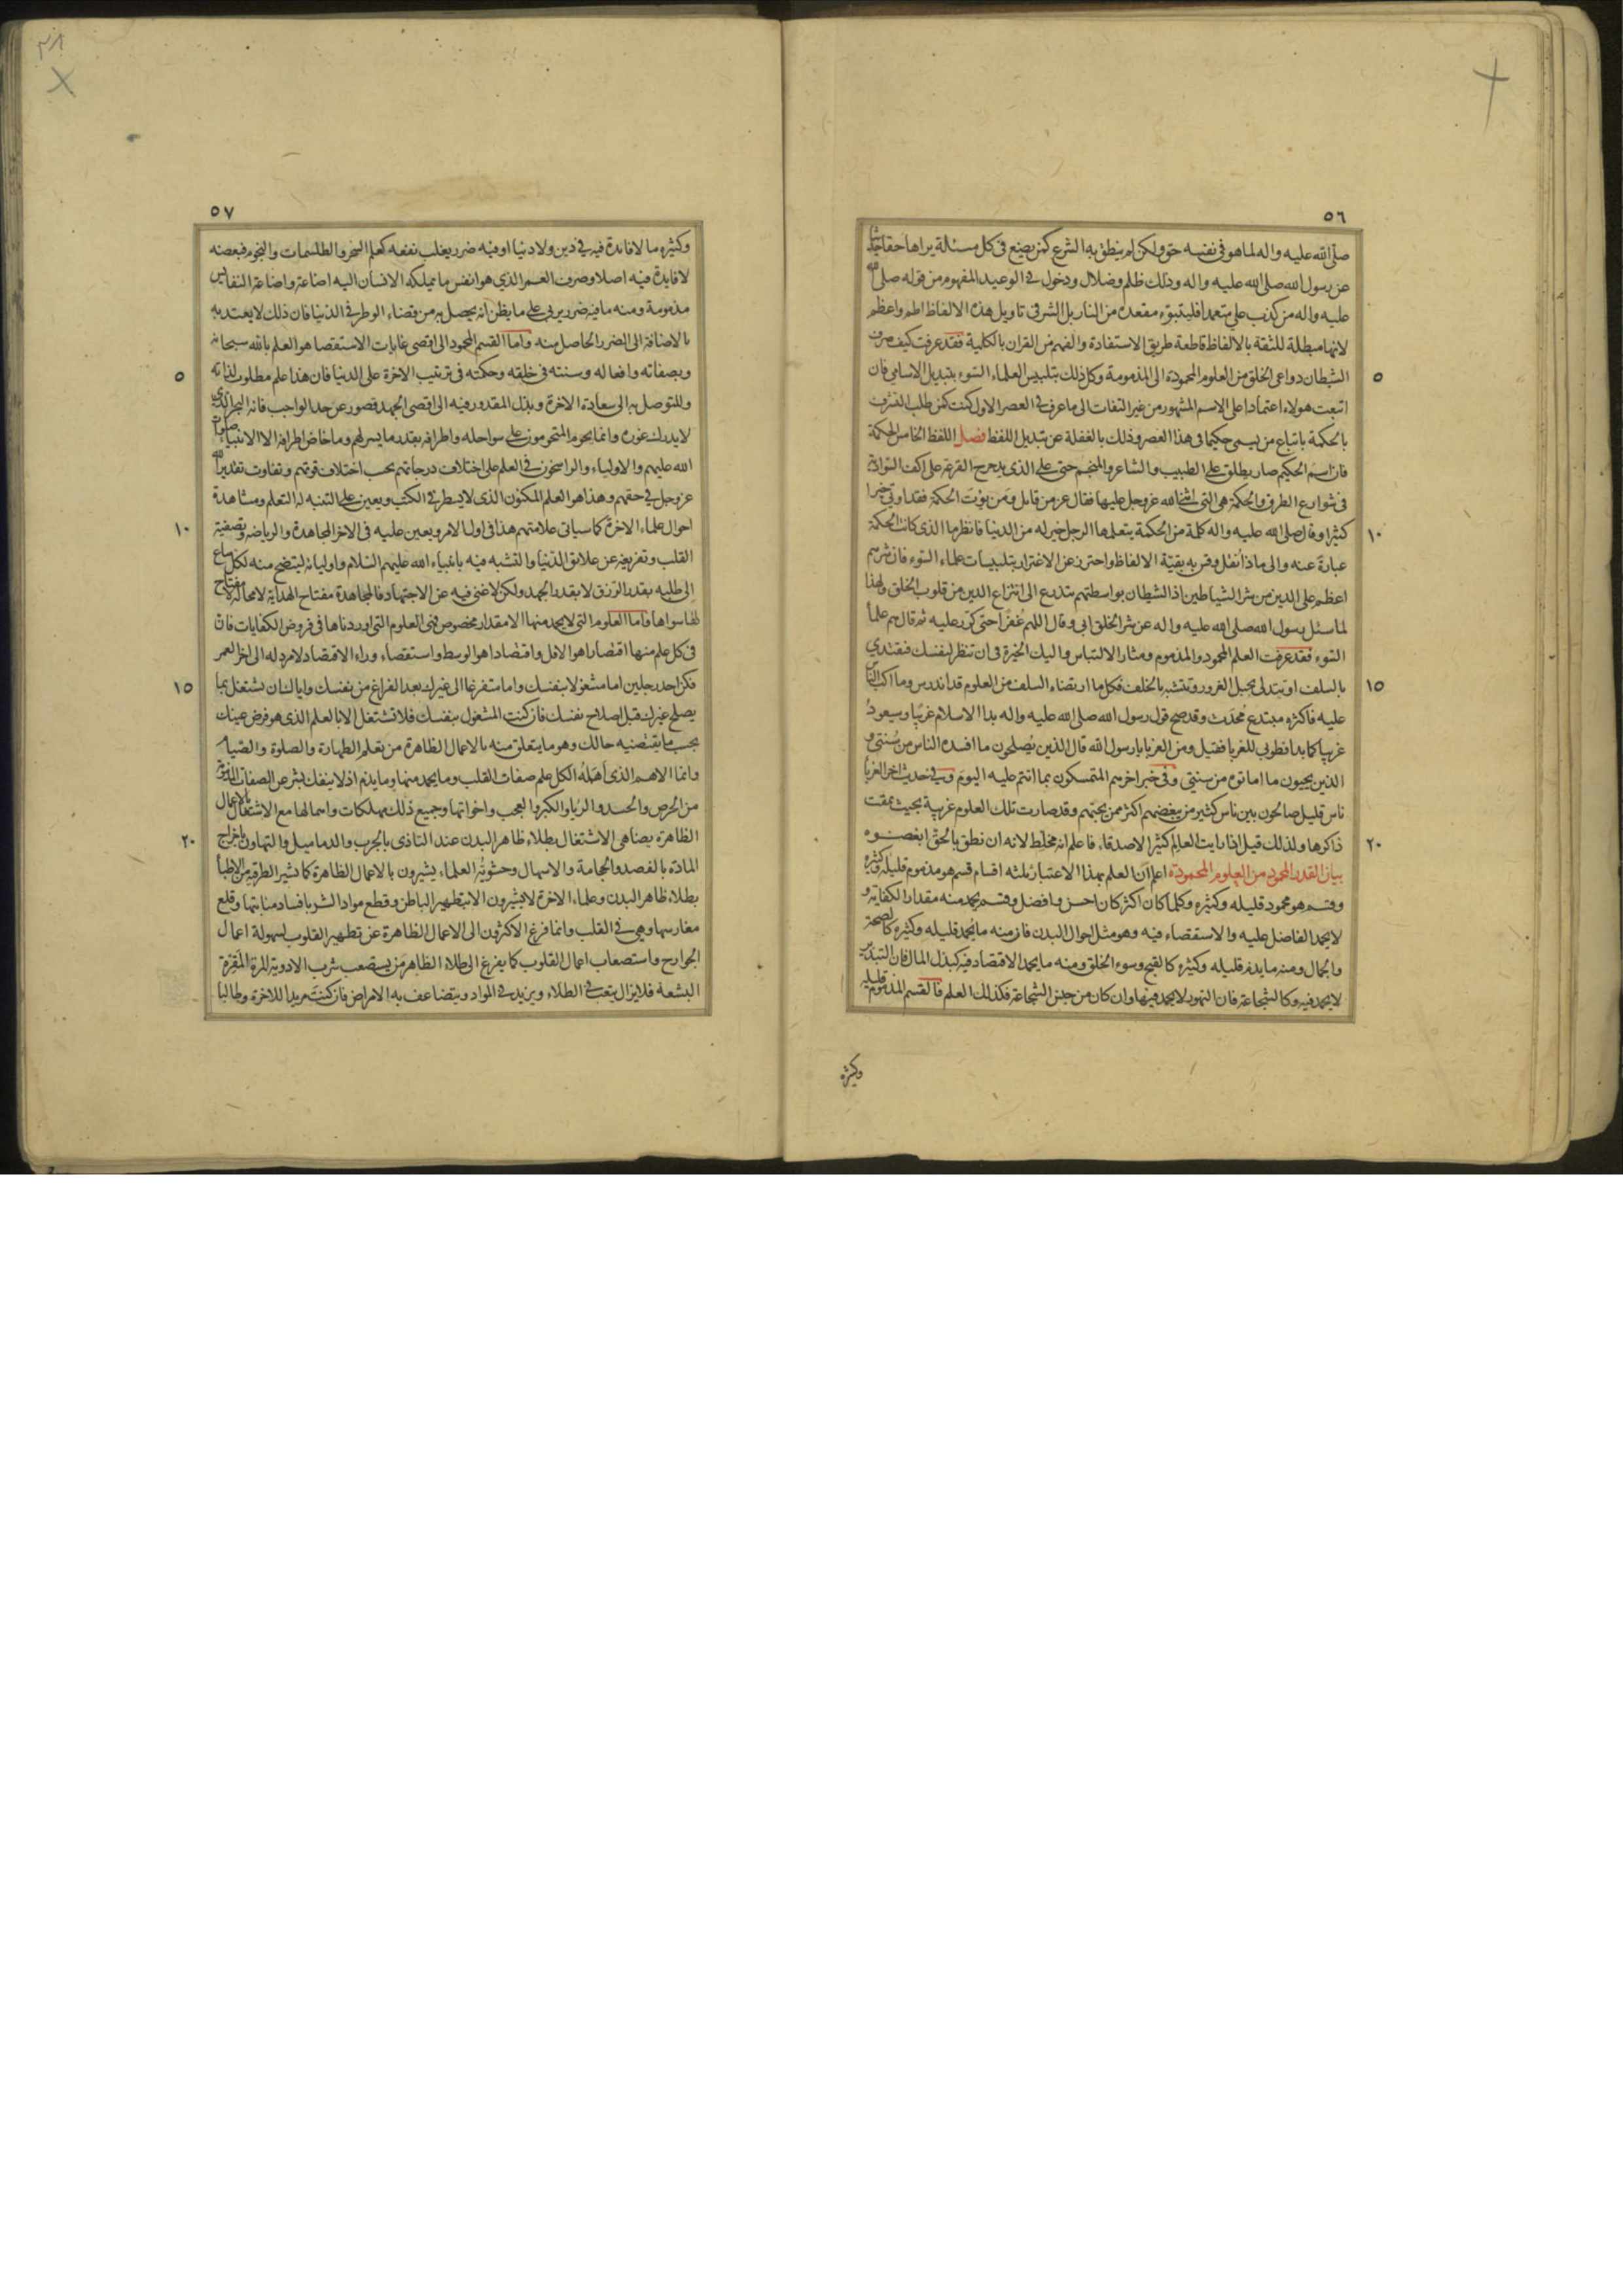 ٥٦
صلى الله عليه واله لما هو فى نفسه حق ولكن لم ينطق به الشرع كمن يضع فى كل مسئلة يراها حقا حديثا
عن رسول الله صلى الله عليه واله وذلك ظلم وضلال ودخول فى الوعيد المفهوم من قوله صلى الله
عليه واله من كذب على متعمدا فليتبوء مقعده من النار بل الشر فى تاويل هذه الالفاظ اطم واعظم
لانها مبطلة للثقة بالالفاظ قاطعة طريق الاستفادة والفهم من القران بالكلية فقد عرفت كيف صرف
٥ الشيطان دواعى الخلق من العلوم المحمودة الى المذمومة وكل ذلك بتلبيس العلماء السوء بتبديل الاسامى فان
اتبعت هولاء اعتمادا على الاسم المشهور من غير التفات الى ما عرف فى العصر الاول كنت كمن طلب الشرف
بالحكمة باتباع من يسمى حكيما فى هذا العصر وذلك بالغفلة عن تبديل اللفظ فصل اللفظ الخامس الحكمة
فان اسم الحكيم صار يطلق على الطبيب والشاعر والمنجم حتى على الذى يدحرج القرعة على اكف السوادية
فى شوارع الطرق والحكمة هى التى اثنى الله عز وجل عليها فقال عز من قايل ومن يؤت الحكمة فقد اوتى خيرا
١٠ كثيرا وقال صلى الله عليه واله كلمة من الحكمة يتعلمها الرجل خير له من الدنيا فانظر ما الذى كانت الحكمة
عبارة عنه والى ماذا نُقل وقس به بقيّة الالفاظ واحترز عن الاغترار بتلبيسات علماء السوء فان شرهم
اعظم على الدين من شر الشياطين اذ الشيطان بواسطتهم يتدرع الى انتزاع الدين من قلوب الخلق ولهذا
لما سئل رسول الله صلى الله عليه واله عن شر الخلق ابى وقال اللهم غُفرًا حتى كرّر عليه ثم قال هم علماء
السوء فقد عرفت العلم المحمود والمذموم ومثار الالتباس واليك الخيرة فى ان تنظر لنفسك فتقتدي
١٥ بالسلف او تتدلى بحبل الغرور وتتشبه بالخلف فكل ما ارتضاه السلف من العلوم قد اندرس وما اكب الناس
عليه فاكثره مبتدع مُحدَث وقد صح قول رسول الله صلى الله عليه واله بدا الاسلام غريبًا وسيعودُ
غريبا كما بدا فطوبى للغربا فقيل ومن الغربا يا رسول الله قال الذين يُصلحون ما افسده الناس من سُنتى و
الذين يحيون ما اماتوه من سنتى وفى خبر اخر هم المتمسكون بما انتم عليه اليوم وفى حديث اخر الغربا
ناس قليل صالحون بين ناس كثير من يبغضهم اكثر ممن يحبّهم وقد صارت تلك العلوم غريبة بحيث يمقت
٢٠ ذاكرها ولذلك قيل اذا رايت العالم كثير الاصدقاء فاعلم انه مخلّط لانه ان نطق بالحق ابغضوه
بيان القدر المحمود من العلوم المحمودة اعلم ان العلم بهذا الاعتبار ثلثه اقسام قسم هو مذموم قليله وكثيره
وقسم هو محمود قليله وكثيره وكلما كان اكثر كان احسن وافضل وقسم يحمد منه مقدار الكفاية و
لا يحمد الفاضل عليه والاستقصاء فيه وهو مثل احوال البدن فان منه ما يُحمد قليله وكثيره كالصحة
والجمال ومنه ما يذم قليله وكثيره كالقبح وسوء الخلق ومنه ما يحمد الاقتصاد فيه كبذل المال فان التبذير
لا يحمد فيه وكالشجاعة فان التهور لا يحمد فيها وان كان من جنس الشجاعة فكذلك العلم فالقسم المذموم قليله
وكثيره
٣٨
٥٧
وكثيره ما لا فايدة فيه فى دين ولا دنيا او فيه ضرر يغلب نفعه كعلم السحر والطلسمات والنجوم فبعضه
لا فايدة فيه اصلا وصرف العمر الذي هو انفس ما يملكه الانسان اليه اضاعة واضاعة النفايس
مذمومة ومنه ما فيه ضرر يربى على ما يظن انه يحصل به من قضاء الوطر فى الدنيا فان ذلك لا يعتد به
بالاضافة الى الضرر الحاصل منه واما القسم المحمود الى اقصى غايات الاستقصا هو العلم بالله سبحانه
٥ وبصفاته وافعاله وسنته فى خلقه وحكمته فى ترتيب الاخرة على الدنيا فان هذا علم مطلوب لذاته
وللتوصل به الى سعادة الاخرة وبذل المقدور فيه الى اقصى الجهد قصور عن حد الواجب فانه البحر الذي
لا يدرك غوره وانما يحوم المتحومون على سواحله واطرافه بقدر ما يسر لهم وما خاض اطرافه الا الانبياء صلوات
الله عليهم والاولياء والراسخون فى العلم على اختلاف درجاتهم بحسب اختلاف قوتهم وتفاوت تقدير الله
عز وجل فى حقهم وهذا هو العلم المكنون الذى لا يسطر فى الكتب ويعين على التنبه له التعلم ومشاهدة
١٠ احوال علماء الاخرة كما سياتى علامتهم هذا فى اول الامر ويعين عليه فى الاخر المجاهدة والرياضة وتصفية
القلب وتفريغه عن علائق الدنيا والتشبه فيه بانبياء الله عليهم السلام واوليائه ليتضح منه لكل ساع
إلى طلبه بقدر الرزق لا بقدر الجهد ولكن لا غنى فيه عن الاجتهاد فالمجاهدة مفتاح الهداية لا محالة لا مفتاح
لها سواها فاما العلوم التى لا يحمد منها الا مقدار مخصوص فهى العلوم التى اوردناها فى فروض الكفايات فان
فى كل علم منها اقتصارا هو الاقل واقتصادا هو الوسط واستقصاء وراء الاقتصاد لا مرد له الى اخر العمر
١٥ فكن احد رجلين اما مشغولا بنفسك واما متفرغا الى غيرك بعد الفراغ من نفسك واياك ان تشتغل بما
يصلح غيرك قبل اصلاح نفسك فان كنت المشغول بنفسك فلا تشتغل الا بالعلم الذى هو فرض عينك
بحسب ما يقتضيه حالك وهو ما يتعلق منه بالاعمال الظاهرة من تعلم الطهارة والصلوة والصيام
وانما الاهم الذى أهمَلَهُ الكل علم صفات القلب وما يحمد منها وما يذم اذ لا ينفك بشر عن الصفات المذمومة
من الحرص والحسد والريا والكبر والعجب واخواتها وجميع ذلك مهلكات واهمالها مع الاشتغال بالاعمال
٢٠ الظاهرة يضاهى الاشتغال بطلاء ظاهر البدن عند التاذى بالجرب والدماميل والتهاون باخراج
المادة بالفصد والحجامة والاسهال وحشويّة العلماء يشيرون بالاعمال الظاهرة كما يشير الطرقية من الاطباء
بطلاء ظاهر البدن وعلماء الاخرة لا يشيرون الا بتطهير الباطن وقطع مواد الشر بافساد منابتها وقلع
مغارسها وهى فى القلب وانما فرغ الاكثرون الى الاعمال الظاهرة عن تطهير القلوب لسهولة اعمال
الجوارح واستصعاب اعمال القلوب كما يفزع الى طلاء الظاهر من يستصعب شرب الادوية المرة المقززة
البشعة فلا يزال يتعب فى الطلاء ويزيد فى المواد ويتضاعف به الامراض فان كنت مريدا للاخرة وطالبا